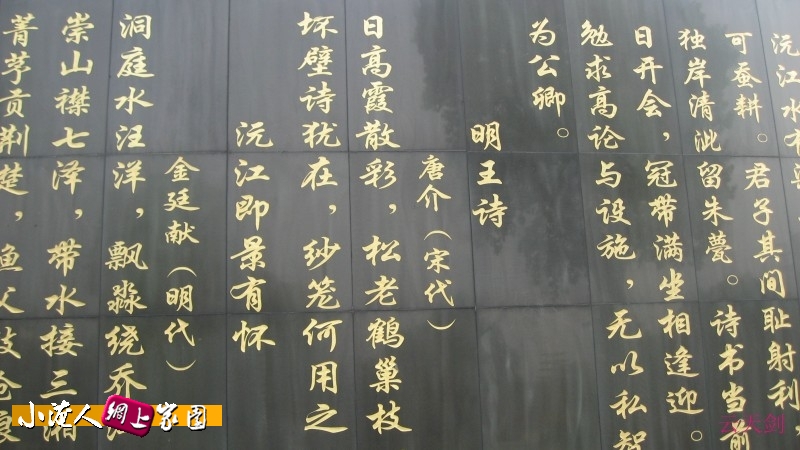 沅江水有
可蚕耕。君子其间耻射利，
独岸清沘留朱甍。诗书当前
日开会，冠带满坐相逢迎。
勉求高论与设施，无以私智
为公卿。
明王诗
唐介（宋代）
日高霞散彩，松老鹤巢枝
坏壁诗犹在，纱笼何用之
沅江即景有怀
金廷献（明代）
洞庭水汪洋，飘淼绕乔
崇山襟七泽，带水接三湘
菁芧贡荆楚，渔父
小淹人網上家園
云大剑